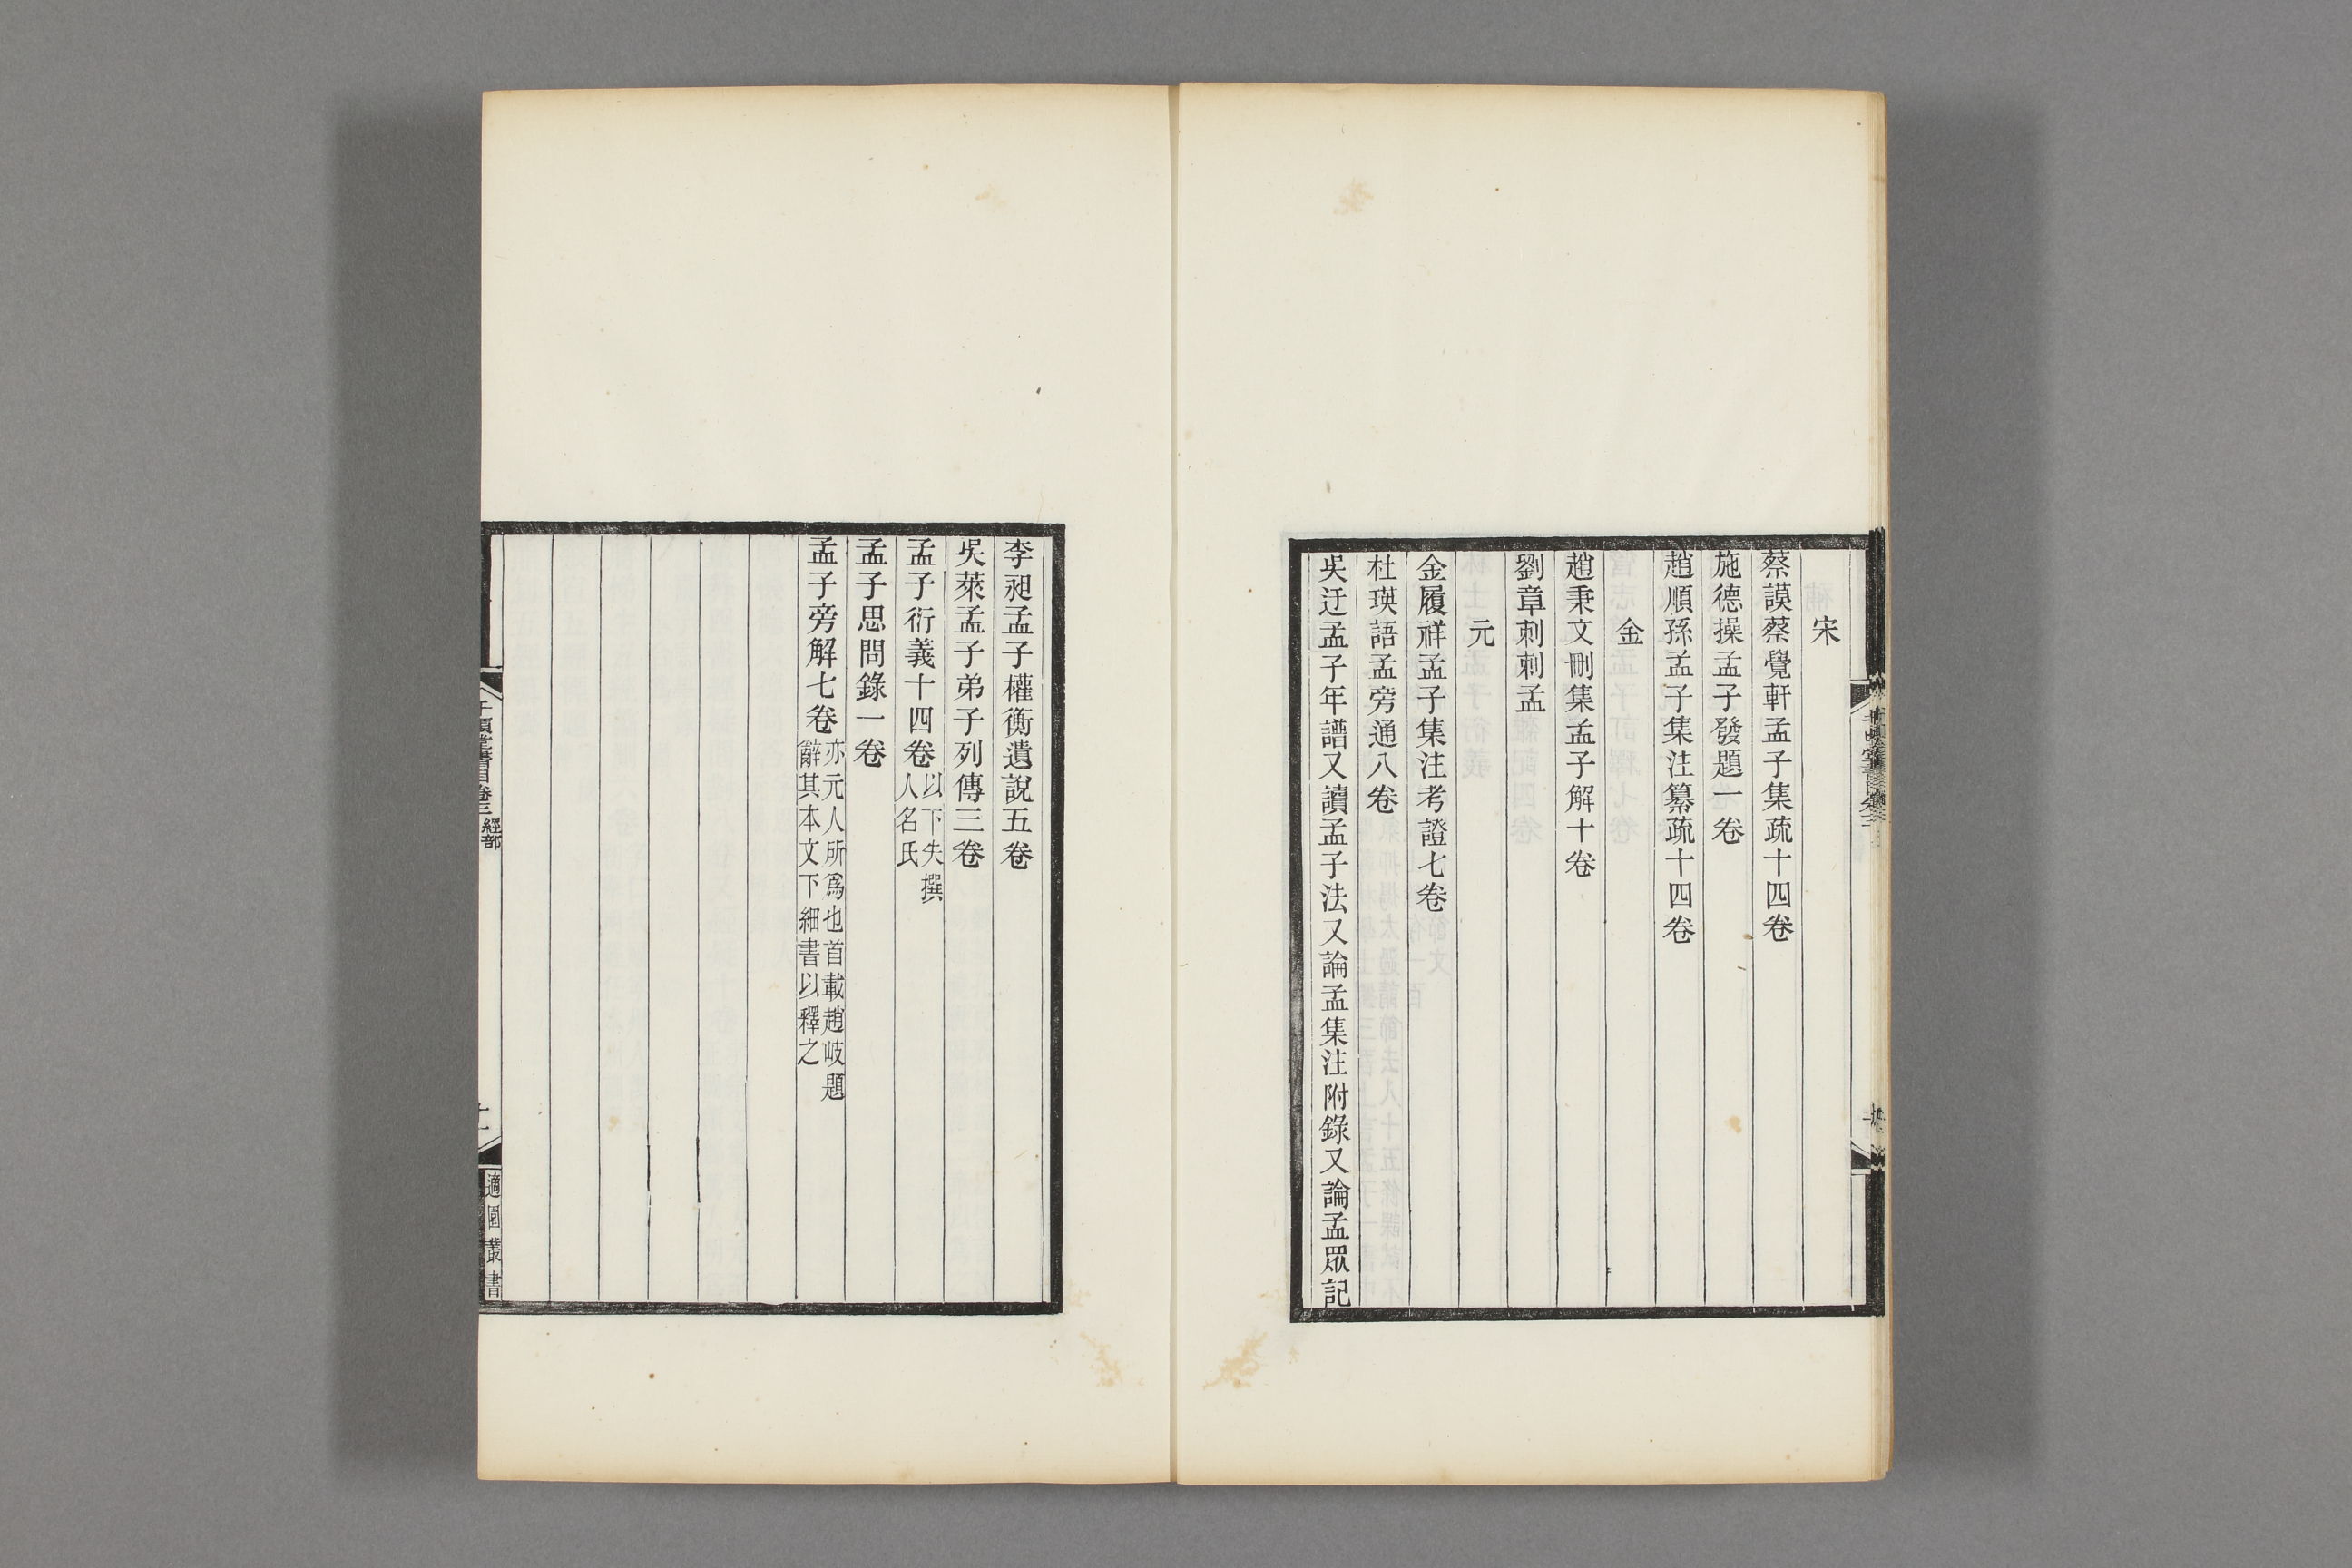 宋
蔡謨蔡覺軒孟子集疏十四卷
施德操孟子發題一卷
趙順孫孟子集注纂疏十四卷
金
趙秉文刪集孟子解十卷
劉章刺刺孟
元
金履祥孟子集注考證七卷
杜瑛語孟旁通八卷
吳迂孟子年譜又讀孟子法又論孟集注附錄又論孟眾記
李昶孟子權衡遺說五卷
吳萊孟子弟子列傳三卷
孟子衍義十四卷以下失撰
人名氏
孟子思問錄一卷
孟子旁解七卷亦元人所爲也首載趙岐題
辭其本文下細書以釋之
千頃堂書目卷三 經部
十一
適園叢書